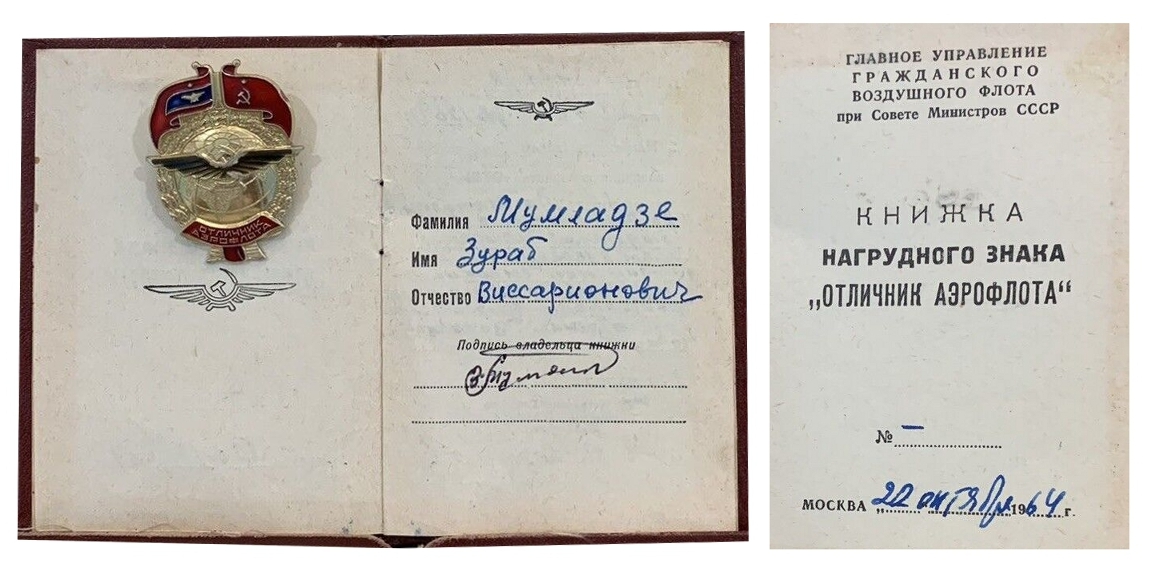 ОТЛИЧНИК
АЭРОФЛОТА
Фамилия Мумладзе
Имя Зураб
Отчество Виссарионович
Подпись владельца книжки
ГЛАВНОЕ УПРАВЛЕНИЕ
ГРАЖДАНСКОГО
ВОЗДУШНОГО ФЛОТА
при Совете Министров СССР
КНИЖКА
НАГРУДНОГО ЗНАКА
„ОТЛИЧНИК АЭРОФЛОТА“
№ —
МОСКВА „22 октября 1964 г.